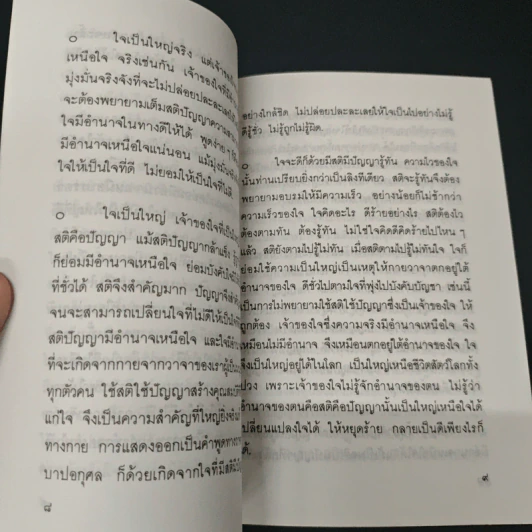 ๐ ใจเป็นใหญ่จริง แต่เจ้าของ
เหนือใจ จริงเช่นกัน เจ้าของใจที่มี
มุ่งมั่นจริงจังที่จะไม่ปล่อยปละละเลย
จะต้องพยายามเติมสติปัญญาความ
ใจมีอำนาจในทางดีให้ได้ พูดง่าย ๆ
มีอำนาจเหนือใจแน่นอน แม้มุ่งมั่น
ใจให้เป็นใจที่ดี ไม่ยอมให้เป็นใจที่ไม่ดี
๐ ใจเป็นใหญ่ เจ้าของใจที่เป็น
สติคือปัญญา แม้สติปัญญากล้าแข็ง
ก็ย่อมมีอำนาจเหนือใจ ย่อมบังคับใจ
ที่ชั่วได้ สติจึงสำคัญมาก ปัญญาจึงสำคัญ
จนจะสามารถเปลี่ยนใจที่ไม่ดีให้เป็นใจ
สติปัญญามีอำนาจเหนือใจ และใจมีอำนาจ
ที่จะเกิดจากกายจากวาจาของเราผู้เป็น
ทุกตัวคน ใช้สติใช้ปัญญาสร้างคุณสมบัติ
แก่ใจ จึงเป็นความสำคัญที่ใหญ่ยิ่งจริง
ทางกาย การแสดงออกเป็นคำพูดทางวาจา
บาปอกุศล ก็ด้วยเกิดจากใจที่มีสติมี
๘
อย่างใกล้ชิด ไม่ปล่อยปละละเลยให้ใจเป็นไปอย่างไม่รู้
ดีรู้ชั่ว ไม่รู้ถูกไม่รู้ผิด
๐ ใจจะดีก็ด้วยมีสติมีปัญญารู้ทัน ความไวของใจ
นั้นท่านเปรียบยิ่งกว่าเป็นลิงทีเดียว สติจะรู้ทันจึงต้อง
พยายามอบรมให้มีความเร็ว อย่างน้อยก็ไม่ช้ากว่า
ความเร็วของใจ ใจคิดอะไร ดีร้ายอย่างไร สติต้องไว
ต้องตามทัน ต้องรู้ทัน ไม่ใช่ใจคิดดีคิดร้ายไปไหน ๆ
แล้ว สติยังตามไปรู้ไม่ทัน เมื่อสติตามไปรู้ไม่ทันใจ ใจก็
ย่อมใช้ความเป็นใหญ่เป็นเหตุให้กายวาจาตกอยู่ใต้
อำนาจของใจ ดีชั่วไปตามใจที่พุ่งไปบังคับบัญชา เช่นนี้
เป็นการไม่พยายามใช้สติใช้ปัญญาซึ่งเป็นเจ้าของใจ ให้
ถูกต้อง เจ้าของใจซึ่งความจริงมีอำนาจเหนือใจ จึง
เหมือนไม่มีอำนาจ จึงเหมือนตกอยู่ใต้อำนาจของใจ ใจ
จึงเป็นใหญ่อยู่ได้ในโลก เป็นใหญ่เหนือชีวิตสัตว์โลกทั้ง
ปวง เพราะเจ้าของใจไม่รู้จักอำนาจของตน ไม่รู้ว่า
อำนาจของตนคือสติคือปัญญานั้นเป็นใหญ่เหนือใจได้
เปลี่ยนแปลงใจได้ ให้หยุดร้าย กลายเป็นดีเพียงไรก็
ได้
๙